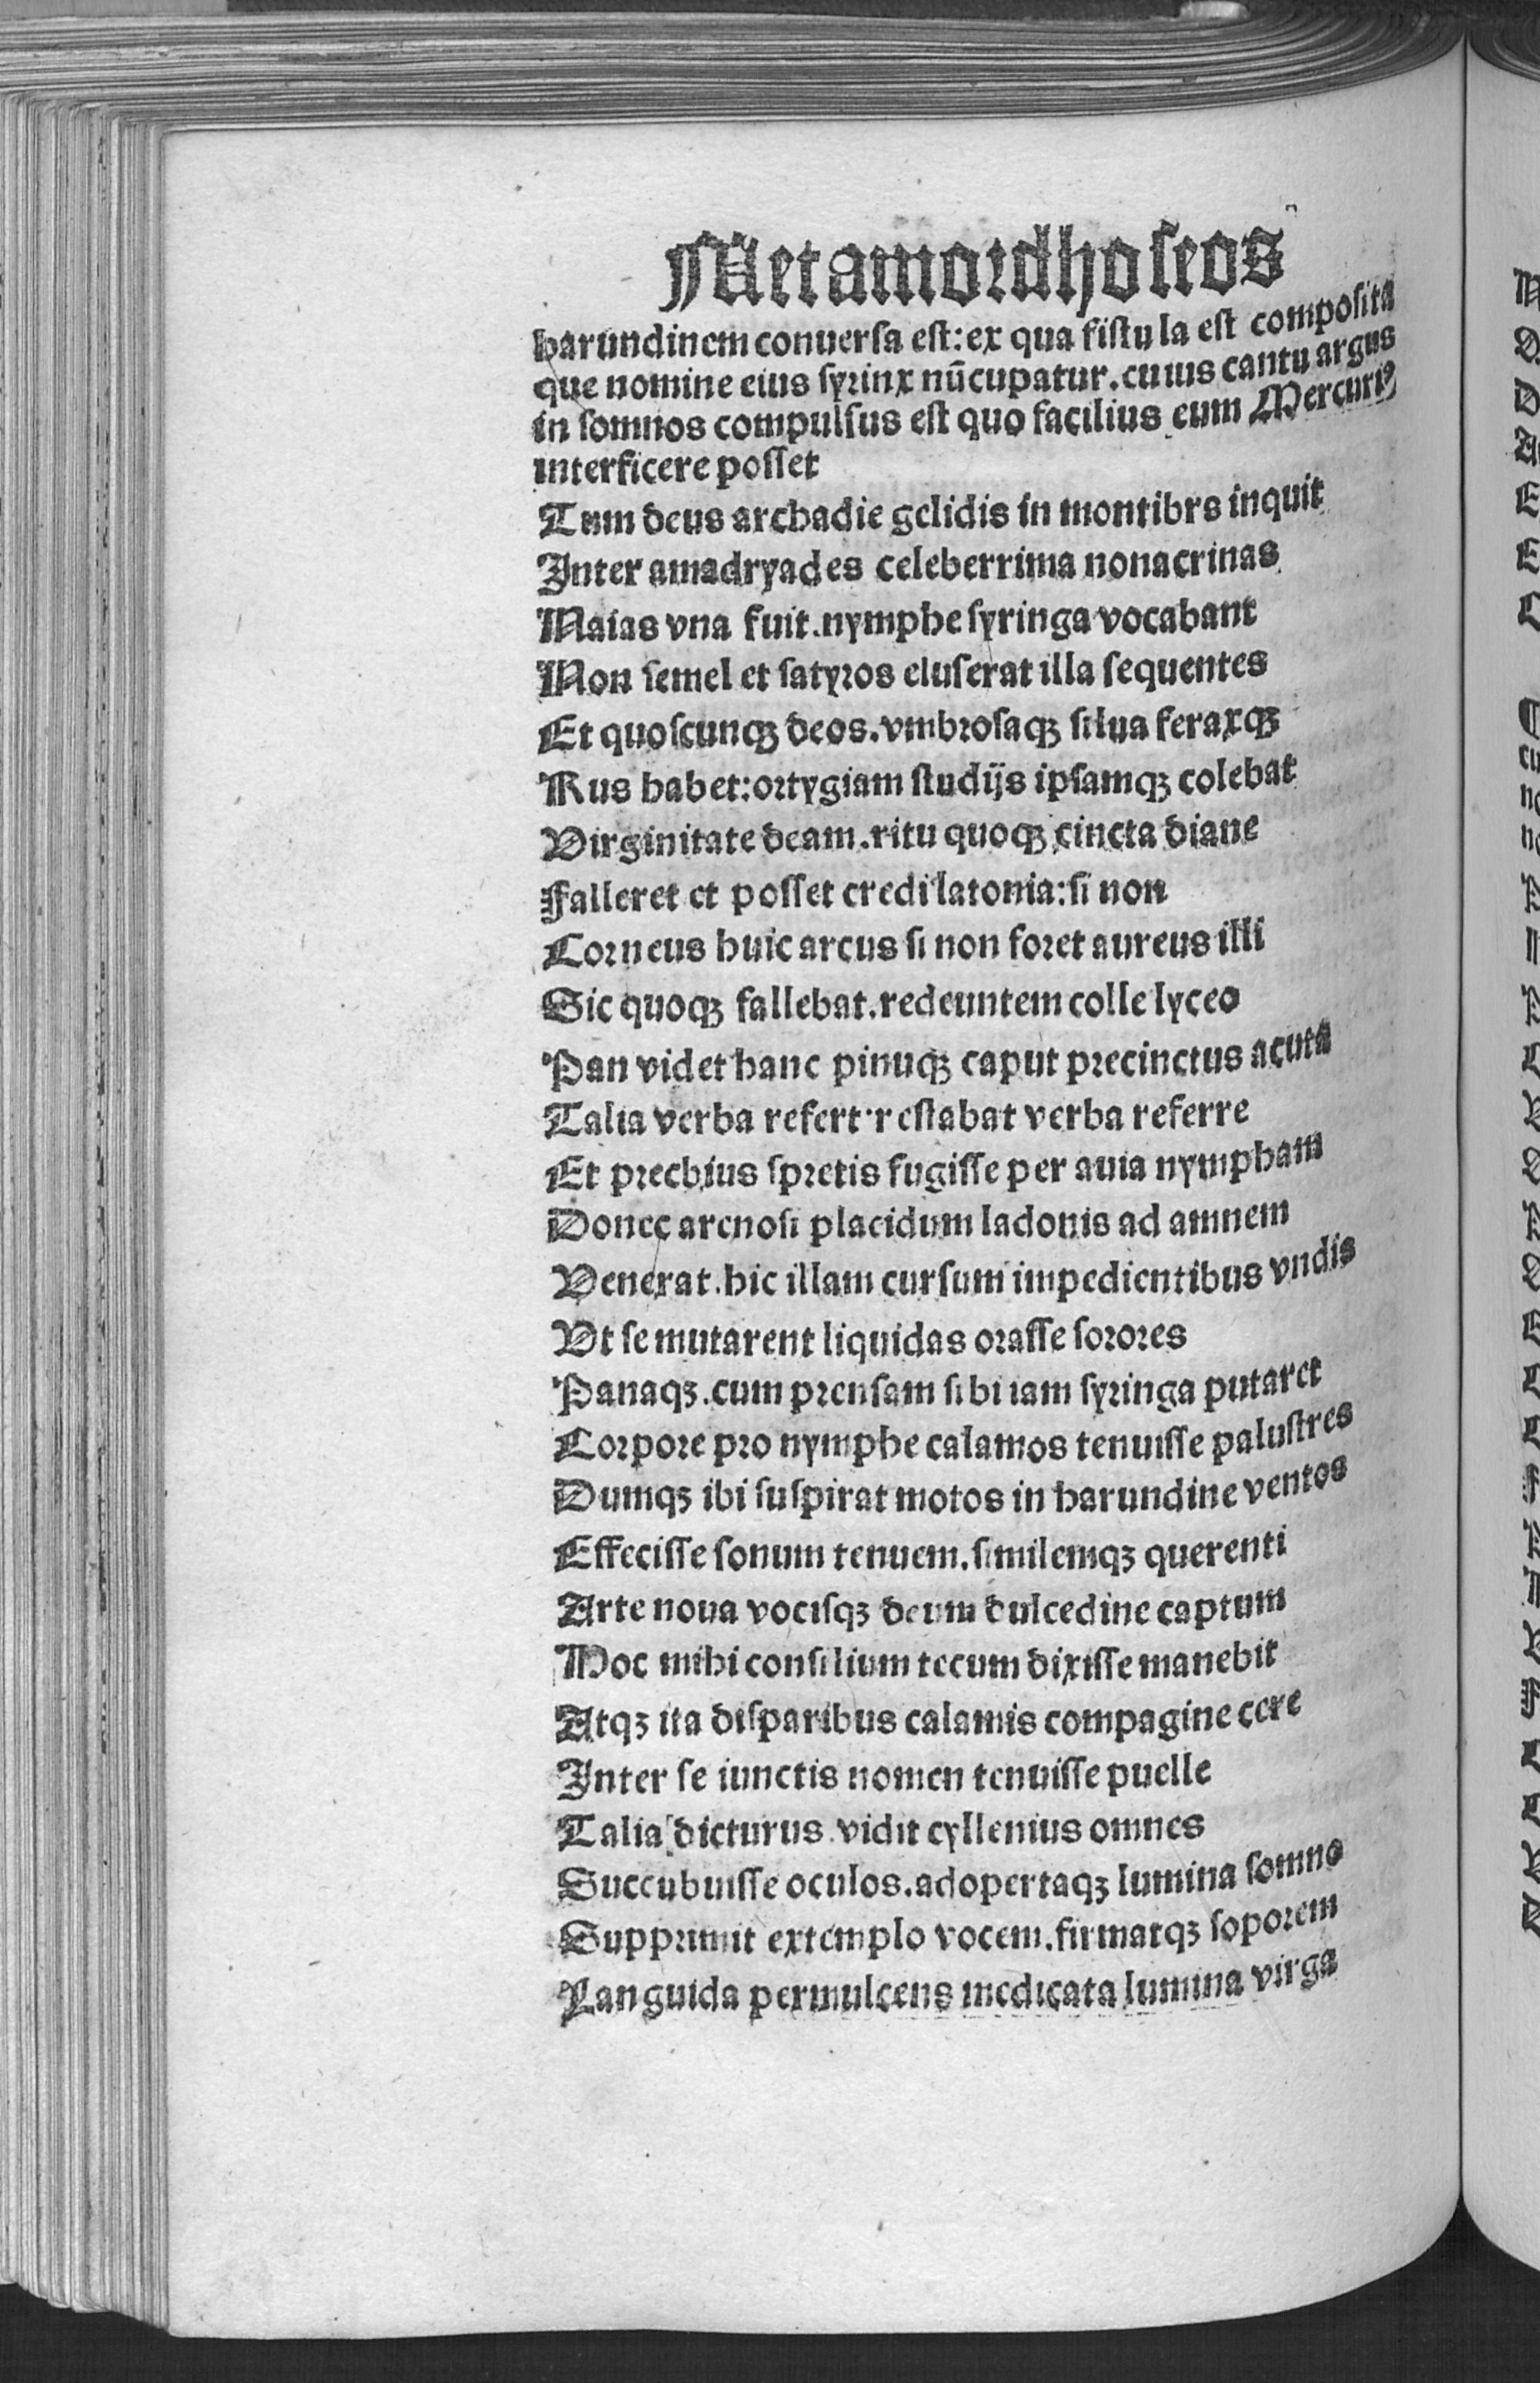 Metamordhoſeos
harundinem conuerſa eſt: ex qua fiſtula eſt compoſita
que nomine eius ſyrinx nūcupatur. cuius cantu argus
in ſomnos compulſus eſt quo facilius eum Mercuriꝰ
interficere poſſet
Tum deus archadie gelidis in montibrs inquit
Inter amadryades celeberrima nonacrinas
Naias vna fuit. nymphe ſyringa vocabant
Non ſemel et ſatyros eluſerat illa ſequentes
Et quoſcunqꝫ deos. vmbroſaqꝫ ſilua feraxqꝫ
Rus habet: ortygiam ſtudijs ipſamqꝫ colebat
Virginitate deam. ritu quoqꝫ cincta diane
Falleret et poſſet credi latonia: ſi non
Corneus huic arcus ſi non foret aureus illi
Sic quoqꝫ fallebat. redeuntem colle lyceo
Pan videt hanc pinuqꝫ caput precinctus acuta
Talia verba refert·reſtabat verba referre
Et precbius ſpretis fugiſſe per auia nympham
Donec arenoſi placidum ladonis ad amnem
Venerat. hic illam curſum impedientibus vndis
Vt ſe mutarent liquidas oraſſe ſorores
Panaqꝫ. cum prenſam ſibi iam ſyringa putaret
Corpore pro nymphe calamos tenuiſſe paluſtres
Dumqꝫ ibi ſuſpirat motos in harundine ventos
Effeciſſe ſonum tenuem. ſimilemqꝫ querenti
Arte noua vociſqꝫ deum dulcedine captum
Hoc mihi conſilium tecum dixiſſe manebit
Atqꝫ ita diſparibus calamis compagine cere
Inter ſe iunctis nomen tenuiſſe puelle
Talia dicturus vidit cyllenius omnes
Succubuiſſe oculos. adopertaqꝫ lumina ſomno
Supprimit extemplo vocem. firmatqꝫ ſoporem
Languida permulcens medicata lumina virga